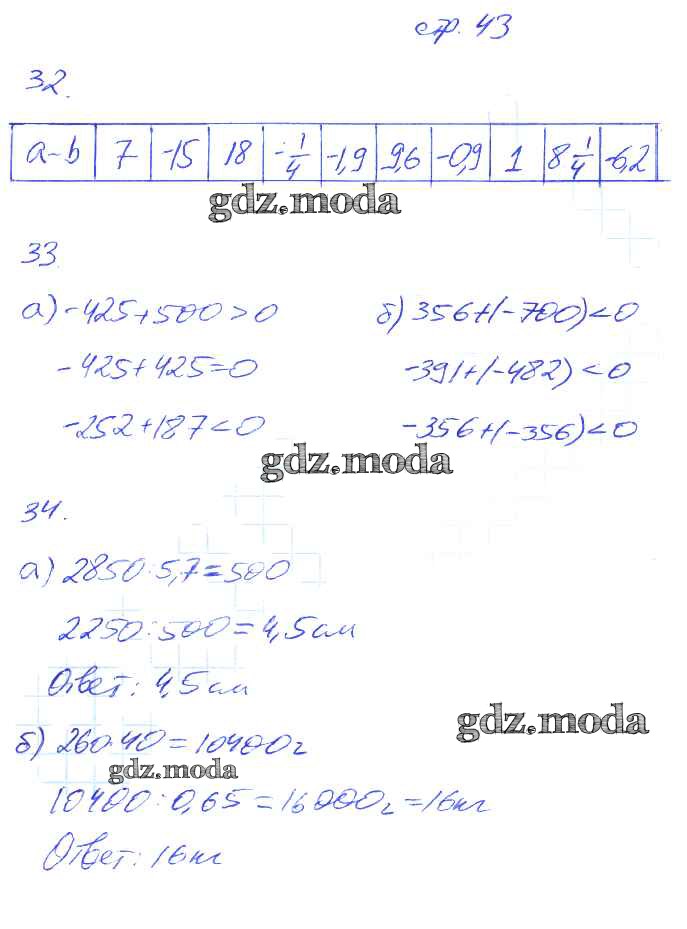 стр. 43
32.
a-b 7 -15 18 -1/4 -1,9 9,6 -0,9 1 8 1/4 -6,2
gdz.moda
33.
а) -425+500>0 б) 356+(-700)<0
-425+425=0 -391+(-482)<0
-252+187<0 -356+(-356)<0
gdz.moda
34.
а) 2850:5,7=500
2250:500=4,5см
Ответ: 4,5см
gdz.moda
б) 260·40=10400г
gdz.moda
10400:0,65=16000г=16кг
Ответ: 16кг